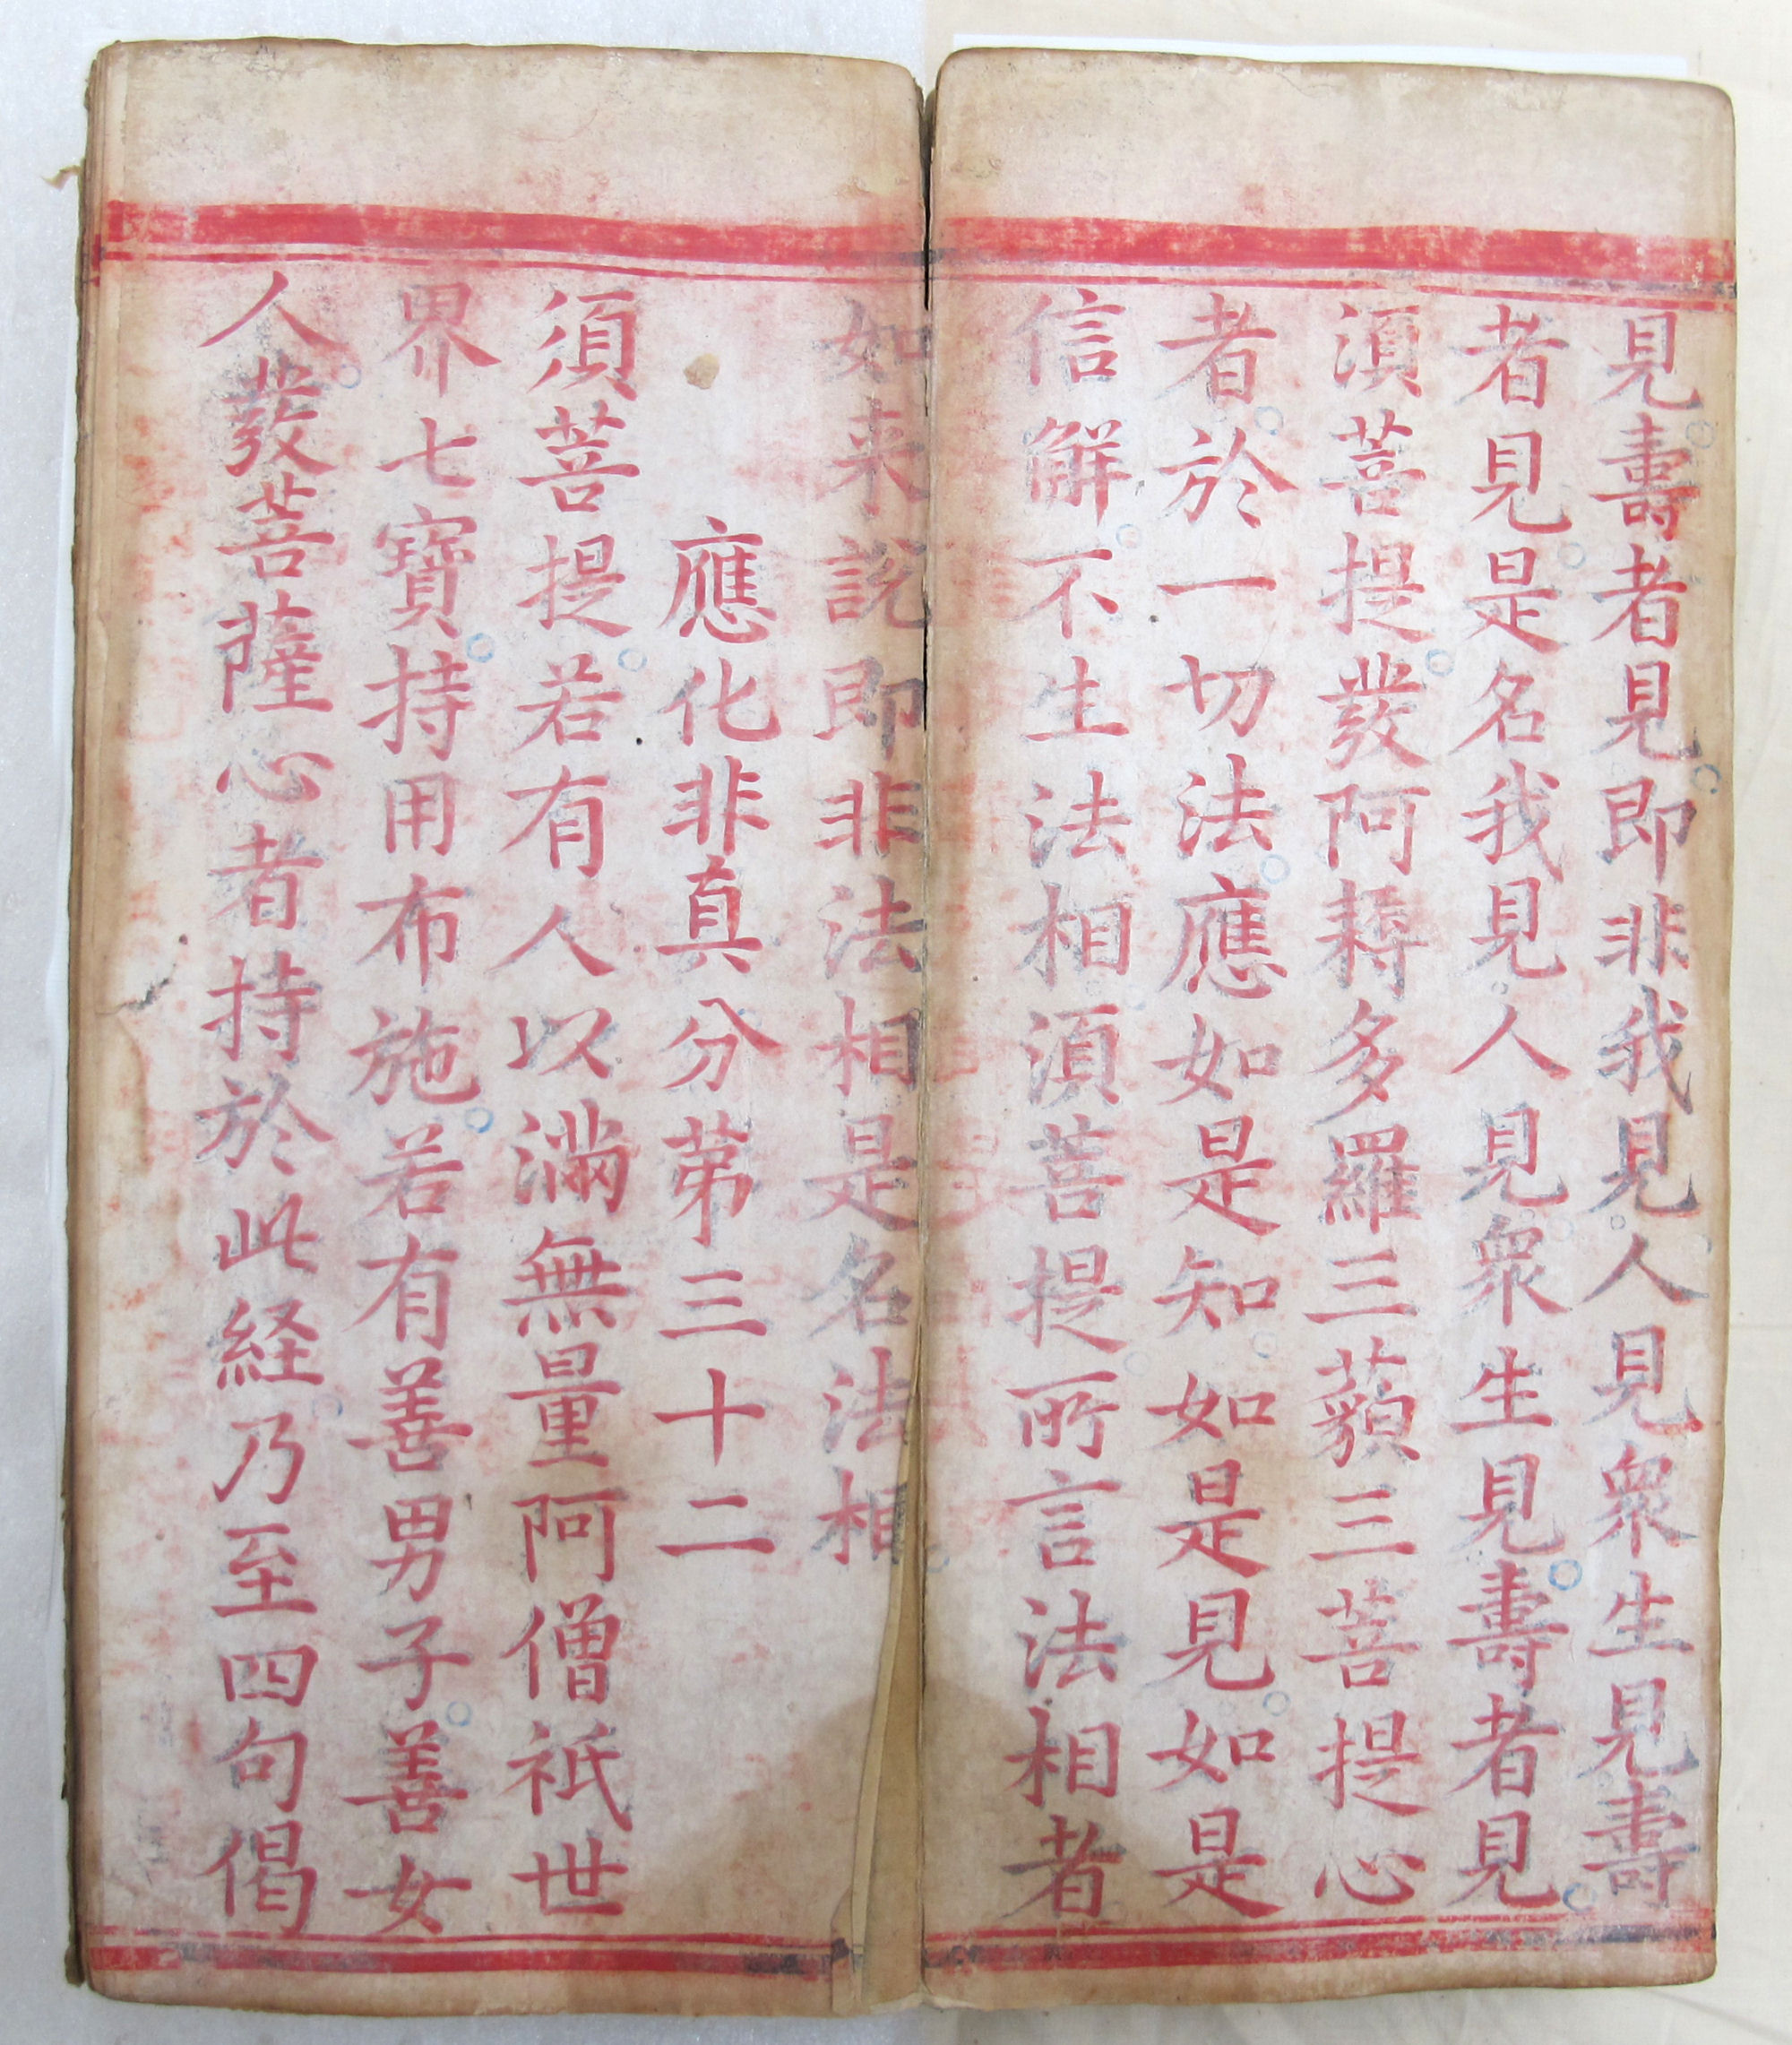 見壽者見即非我見人見衆生見壽
者見是名我見人見衆生見壽者見
湏菩提發阿耨多羅三藐三菩提心
者於一切法應如是知如是見如是
信解不生法相湏菩提所言法相者
如来説即非法相是名法相
應化非真分苐三十二
須菩提若有人以滿無量阿僧祇世
界七寳持用布施若有善男子善女
人發菩薩心者持於此経乃至四句偈